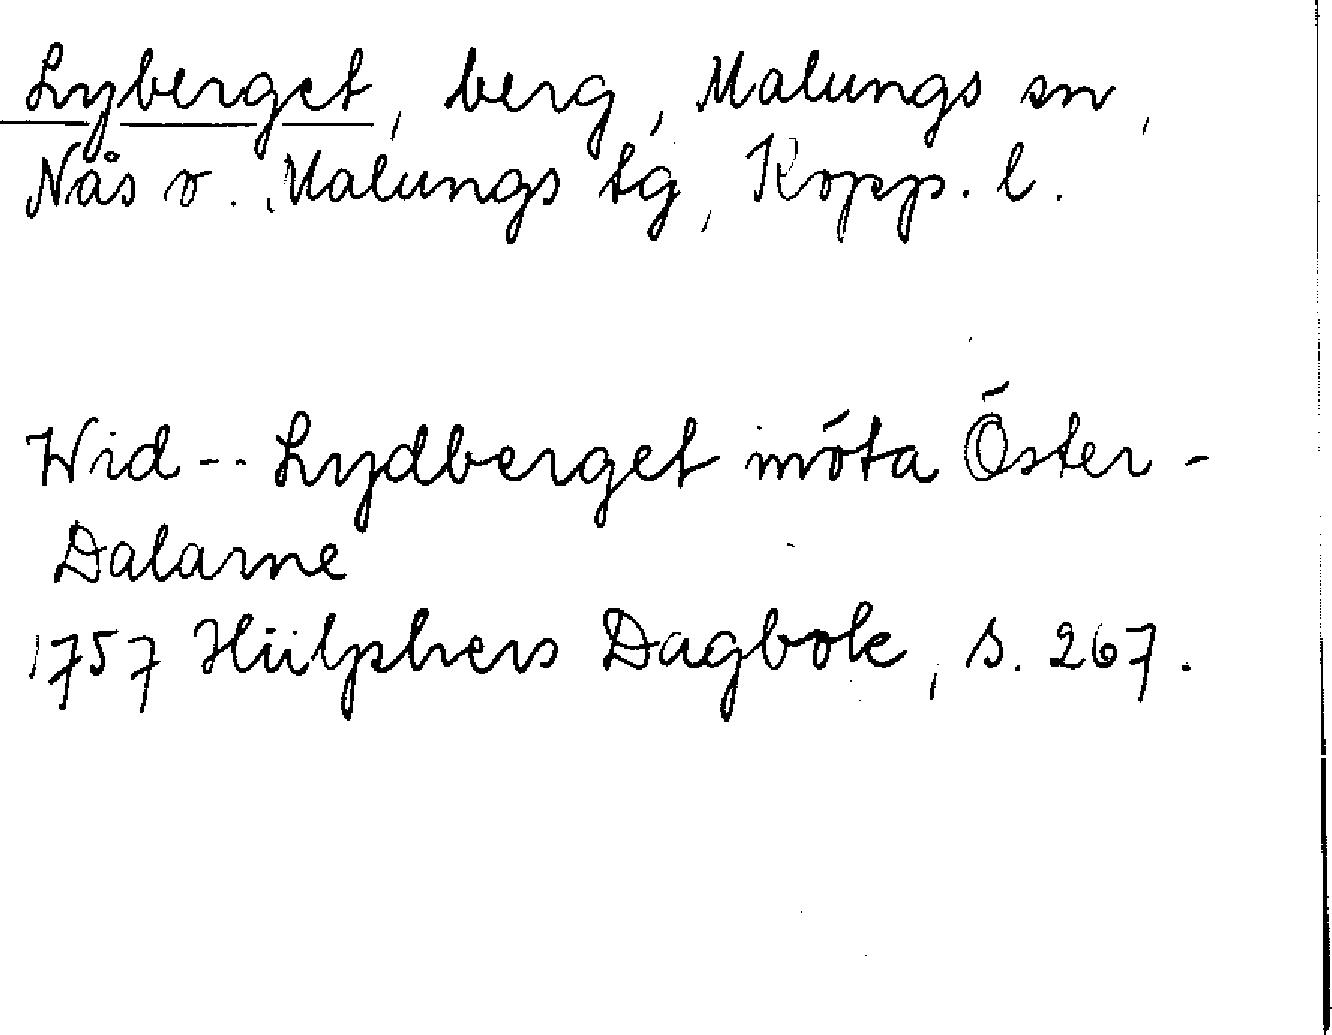 Lyberget, berg, Malungs sn,
Nås o. Malungs tg, Kopp. l.
Wid -- Lydberget móta Öster-
Dalarne
1757 Hülphers Dagbok, s. 267.